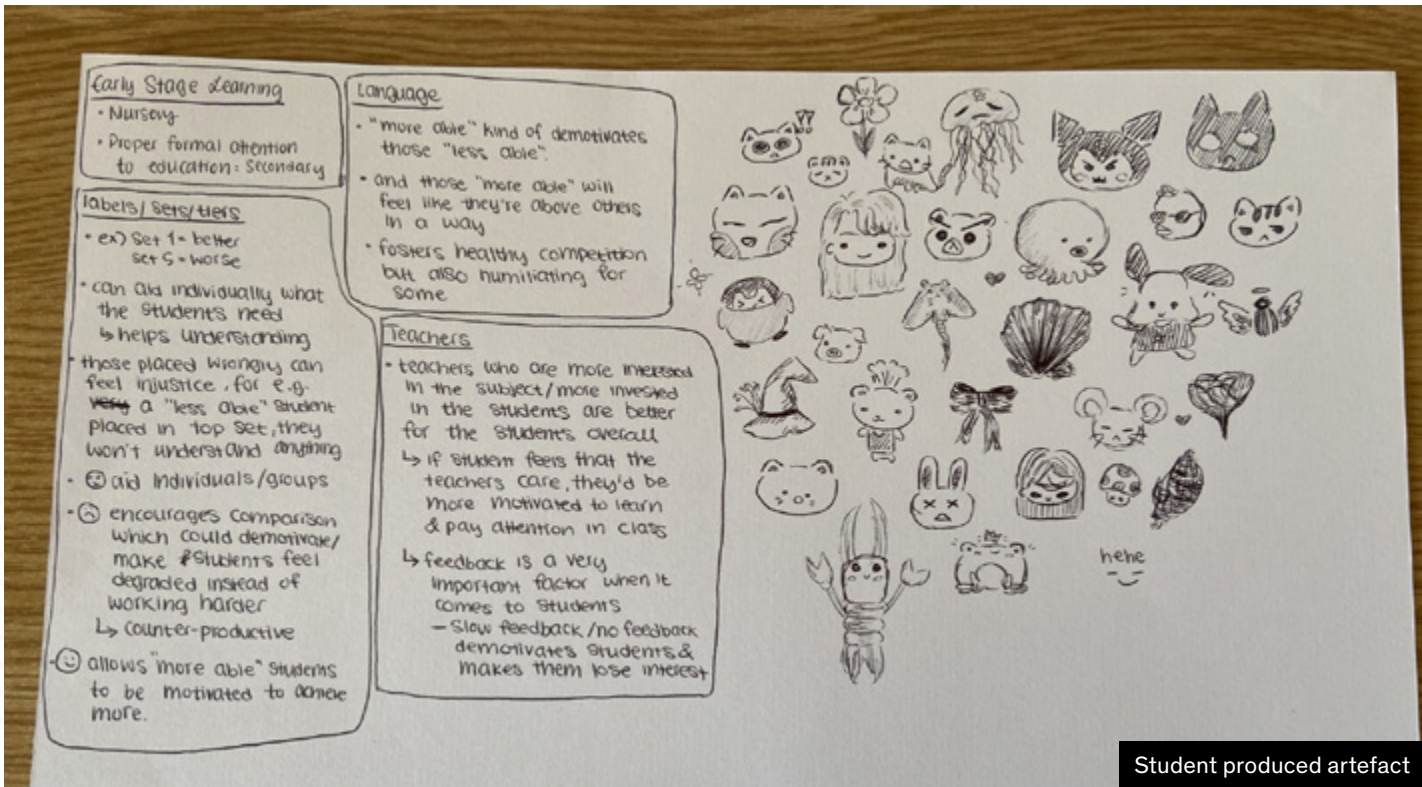 Early Stage Learning
• Nursery
• Proper formal attention
to education = Secondary
labels/sets/tiers
• ex) Set 1 = better
set 5 = worse
• can aid individually what
the students need
↳ helps understanding
• those placed wrongly can
feel injustice, for e.g.
a "less able" student
placed in top set, they
won't understand anything
• aid individuals/groups
• encourages comparison
which could demotivate/
make students feel
degraded instead of
working harder
↳ counter-productive
- allows "more able" students
to be motivated to achieve
more.
Language
• "more able" kind of demotivates
those "less able".
• and those "more able" will
feel like they're above others
in a way
• fosters healthy competition
but also humiliating for
some
Teachers
• teachers who are more interested
in the subject/more invested
in the students are better
for the students overall
↳ if student feels that the
teachers care, they'd be
more motivated to learn
& pay attention in class
↳ feedback is a very
important factor when it
comes to students
– Slow feedback/no feedback
demotivates students &
makes them lose interest
!?
hehe
Student produced artefact